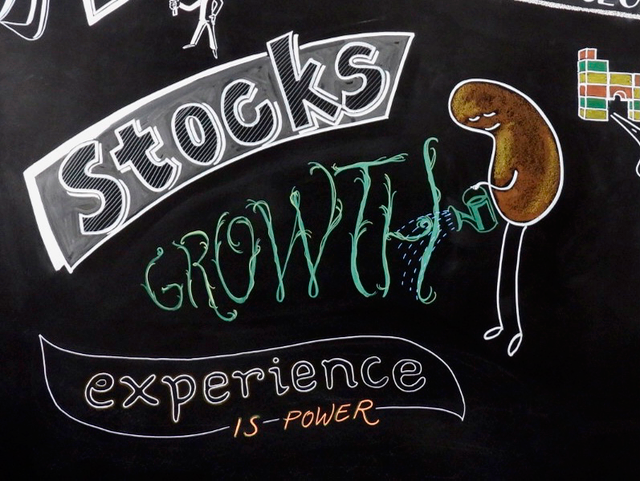 Stocks
GROWTH
experience
IS POWER